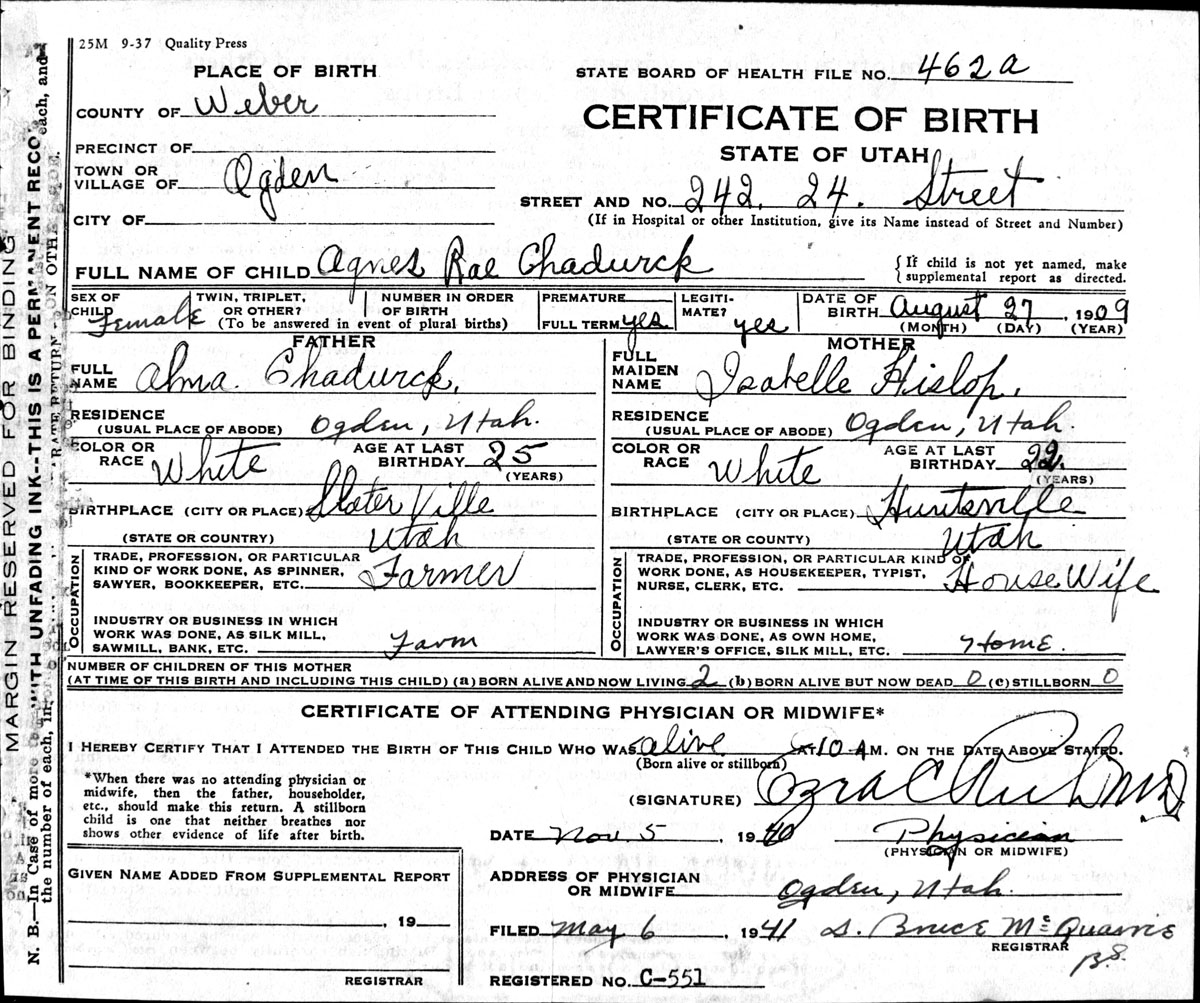 25M 9-37 Quality Press
PLACE OF BIRTH
STATE BOARD OF HEALTH FILE NO. 462a
COUNTY OF Weber
CERTIFICATE OF BIRTH
STATE OF UTAH
PRECINCT OF
TOWN OR VILLAGE OF Ogden
STREET AND NO. 242. 24. Street
(If in Hospital or other Institution, give its Name instead of Street and Number)
CITY OF
FULL NAME OF CHILD Agnes Rae Chadwick
{ If child is not yet named, make supplemental report as directed.
SEX OF CHILD Female
TWIN, TRIPLET, OR OTHER?
NUMBER IN ORDER OF BIRTH
(To be answered in event of plural births)
PREMATURE
FULL TERM yes
LEGITI-MATE? yes
DATE OF BIRTH August 27, 1909
(MONTH) (DAY) (YEAR)
FATHER
FULL NAME Alma. Chadwick.
RESIDENCE (USUAL PLACE OF ABODE) Ogden, Utah.
COLOR OR RACE White
AGE AT LAST BIRTHDAY 25 (YEARS)
BIRTHPLACE (CITY OR PLACE) Slater Ville
(STATE OR COUNTRY) Utah
OCCUPATION
TRADE, PROFESSION, OR PARTICULAR KIND OF WORK DONE, AS SPINNER, SAWYER, BOOKKEEPER, ETC. Farmer
INDUSTRY OR BUSINESS IN WHICH WORK WAS DONE, AS SILK MILL, SAWMILL, BANK, ETC. Farm
MOTHER
FULL MAIDEN NAME Isabelle Hislop.
RESIDENCE (USUAL PLACE OF ABODE) Ogden, Utah.
COLOR OR RACE White
AGE AT LAST BIRTHDAY 22. (YEARS)
BIRTHPLACE (CITY OR PLACE) Huntsville
(STATE OR COUNTY) Utah
OCCUPATION
TRADE, PROFESSION, OR PARTICULAR KIND OF WORK DONE, AS HOUSEKEEPER, TYPIST, NURSE, CLERK, ETC. House Wife
INDUSTRY OR BUSINESS IN WHICH WORK WAS DONE, AS OWN HOME, LAWYER'S OFFICE, SILK MILL, ETC. Home.
NUMBER OF CHILDREN OF THIS MOTHER
(AT TIME OF THIS BIRTH AND INCLUDING THIS CHILD) (a) BORN ALIVE AND NOW LIVING 2 (b) BORN ALIVE BUT NOW DEAD 0 (c) STILLBORN 0
CERTIFICATE OF ATTENDING PHYSICIAN OR MIDWIFE*
I HEREBY CERTIFY THAT I ATTENDED THE BIRTH OF THIS CHILD WHO WAS alive AT 10 A M. ON THE DATE ABOVE STATED.
(Born alive or stillborn)
*When there was no attending physician or midwife, then the father, householder, etc., should make this return. A stillborn child is one that neither breathes nor shows other evidence of life after birth.
(SIGNATURE) Ezra C Rich MD
DATE Nov 5, 1940 Physician
(PHYSICIAN OR MIDWIFE)
ADDRESS OF PHYSICIAN OR MIDWIFE Ogden, Utah.
GIVEN NAME ADDED FROM SUPPLEMENTAL REPORT
, 19
REGISTRAR
FILED May 6, 1941 D. Bruce McQuarrie
REGISTRAR
B.S.
REGISTERED NO. C-551
MARGIN RESERVED FOR BINDING
WITH UNFADING INK--THIS IS A PERMANENT RECO
N. B.—In Case of more
each, and
the number of each, in
RATE RETURN
ON OTHE